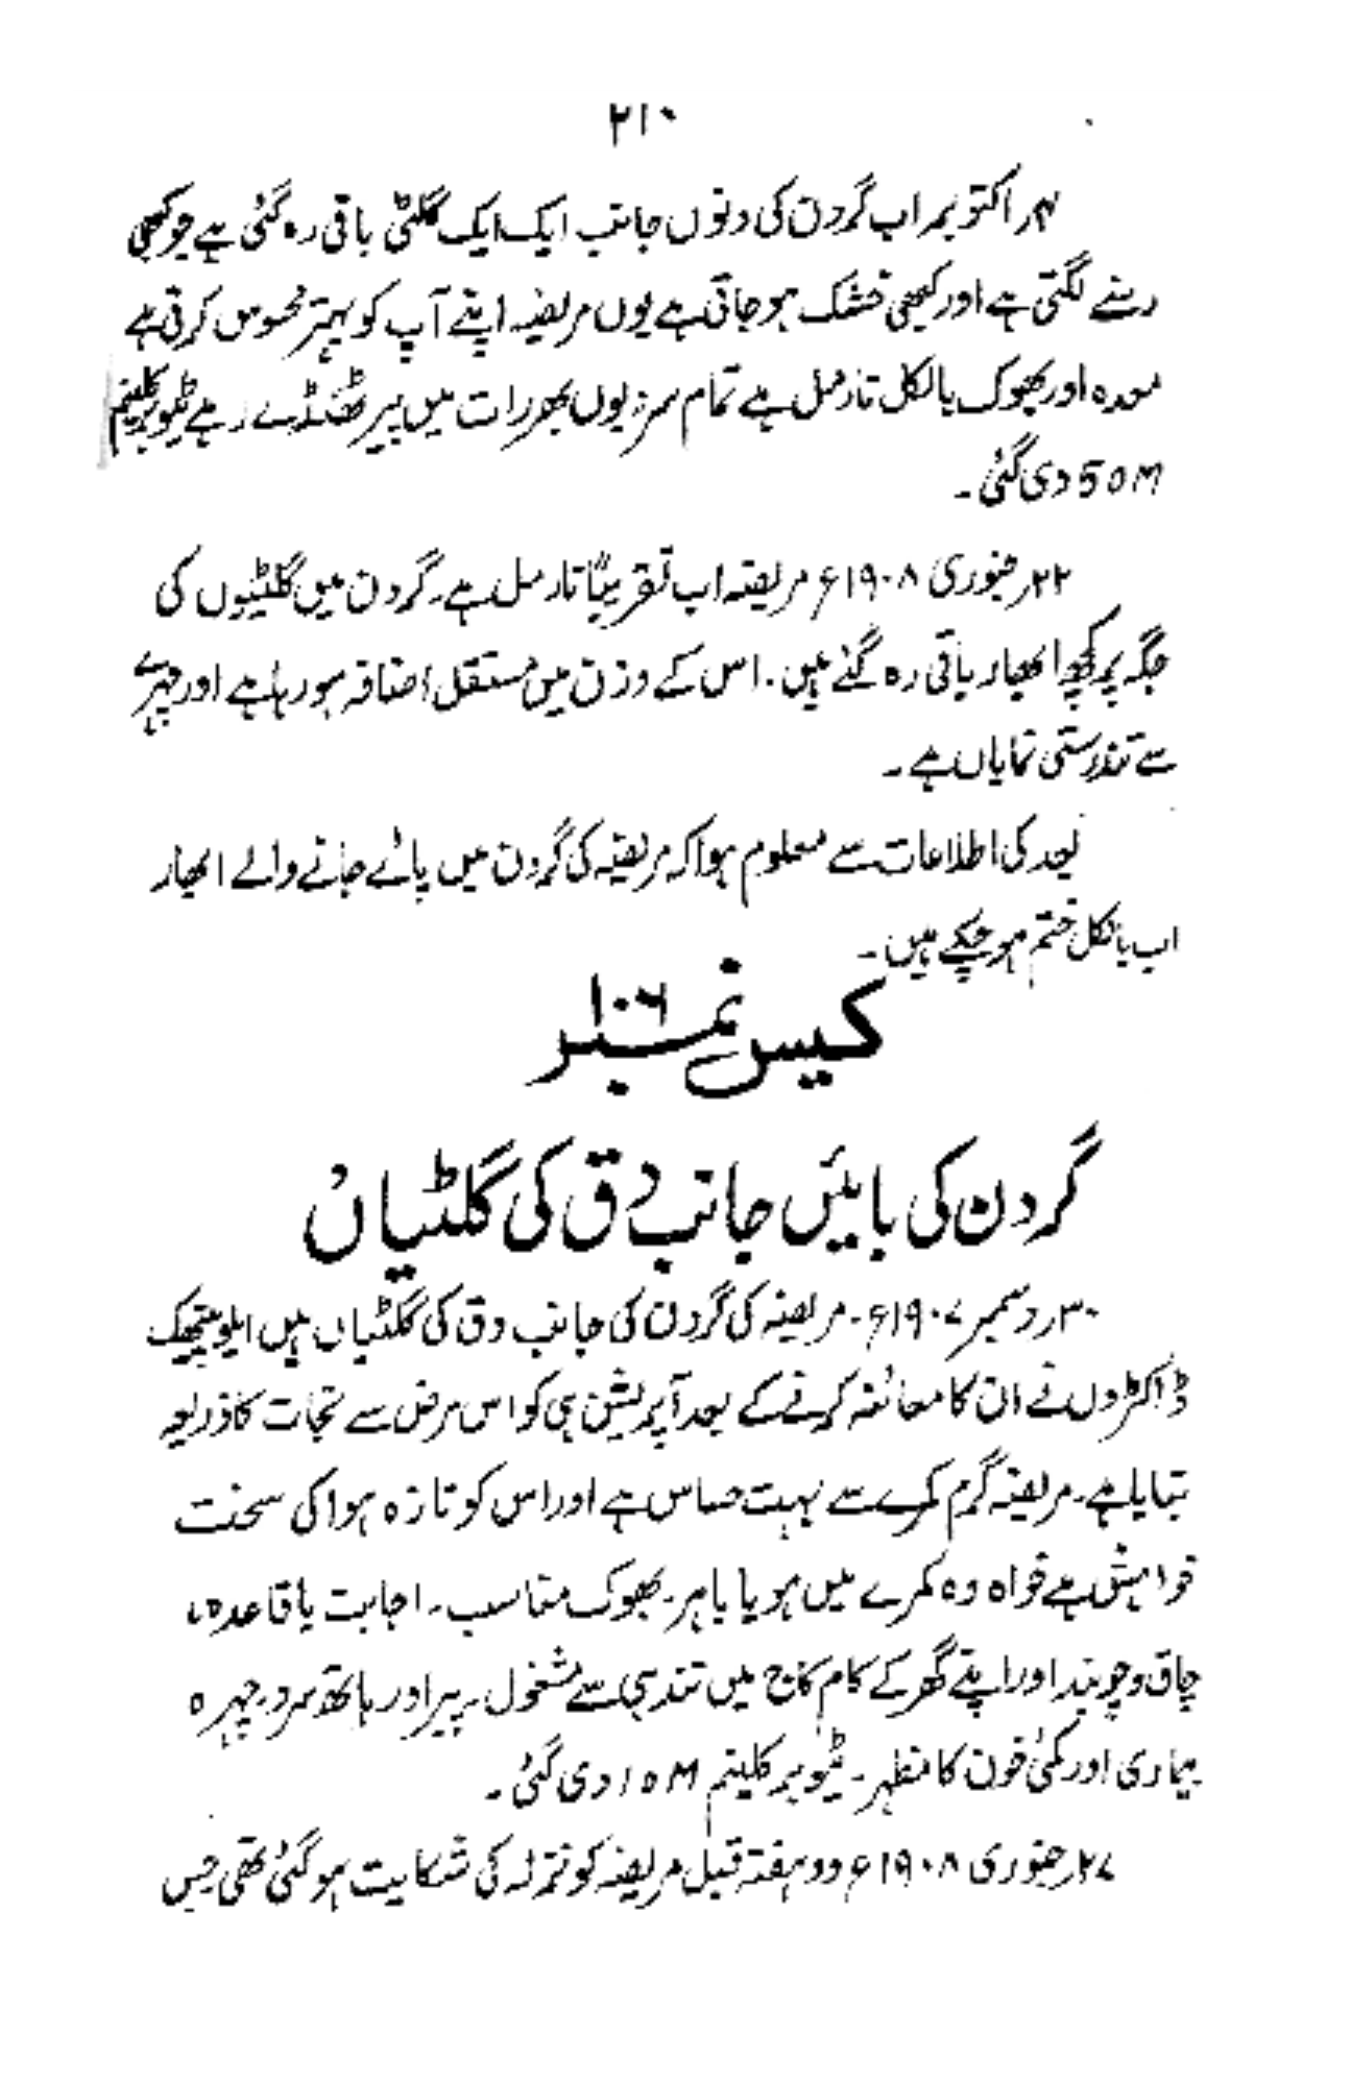 ۲۱۰
۴ر اکتوبر اب گردن کی دونوں جانب ایک ایک گلٹی باقی رہ گئی ہے جو کبھی
رسنے لگتی ہے اور کبھی خشک ہو جاتی ہے یوں مریضہ اپنے آپ کو بہتر محسوس کرتی ہے
معدہ اور بھوک بالکل نارمل ہے تمام سردیوں بھر رات میں پیر ٹھنڈے رہے ٹیوبرکلینم
50M دی گئی۔
۲۲ر جنوری ۱۹۰۸ء مریضہ اب تقریباً نارمل ہے۔ گردن میں گلٹیوں کی
جگہ پر کچھ ابھار باقی رہ گئے ہیں۔ اس کے وزن میں مستقل اضافہ ہو رہا ہے اور چہرے
سے تندرستی نمایاں ہے۔
بعد کی اطلاعات سے معلوم ہوا کہ مریضہ کی گردن میں پائے جانے والے ابھار
اب بالکل ختم ہو چکے ہیں۔
کیس نمبر ۱۰۶
گردن کی بائیں جانب دق کی گلٹیاں
۳۰ر دسمبر ۱۹۰۷ء۔ مریضہ کی گردن کی جانب دق کی گلٹیاں ہیں ایلوپیتھک
ڈاکٹروں نے ان کا معائنہ کرنے کے بعد آپریشن ہی کو اس مرض سے نجات کا ذریعہ
بتایا ہے۔ مریضہ گرم کمرے سے بہت حساس ہے اور اس کو تازہ ہوا کی سخت
خواہش ہے خواہ وہ کمرے میں ہو یا باہر۔ بھوک مناسب۔ اجابت باقاعدہ،
چاق و چوبند اور اپنے گھر کے کام کاج میں تندہی سے مشغول۔ پیر اور ہاتھ سرد۔ چہرہ
بیماری اور کمئ خون کا مظہر۔ ٹیوبرکلینم 10M دی گئی۔
۲۷ر جنوری ۱۹۰۸ء دو ہفتہ قبل مریضہ کو نزلہ کی شکایت ہو گئی تھی جس